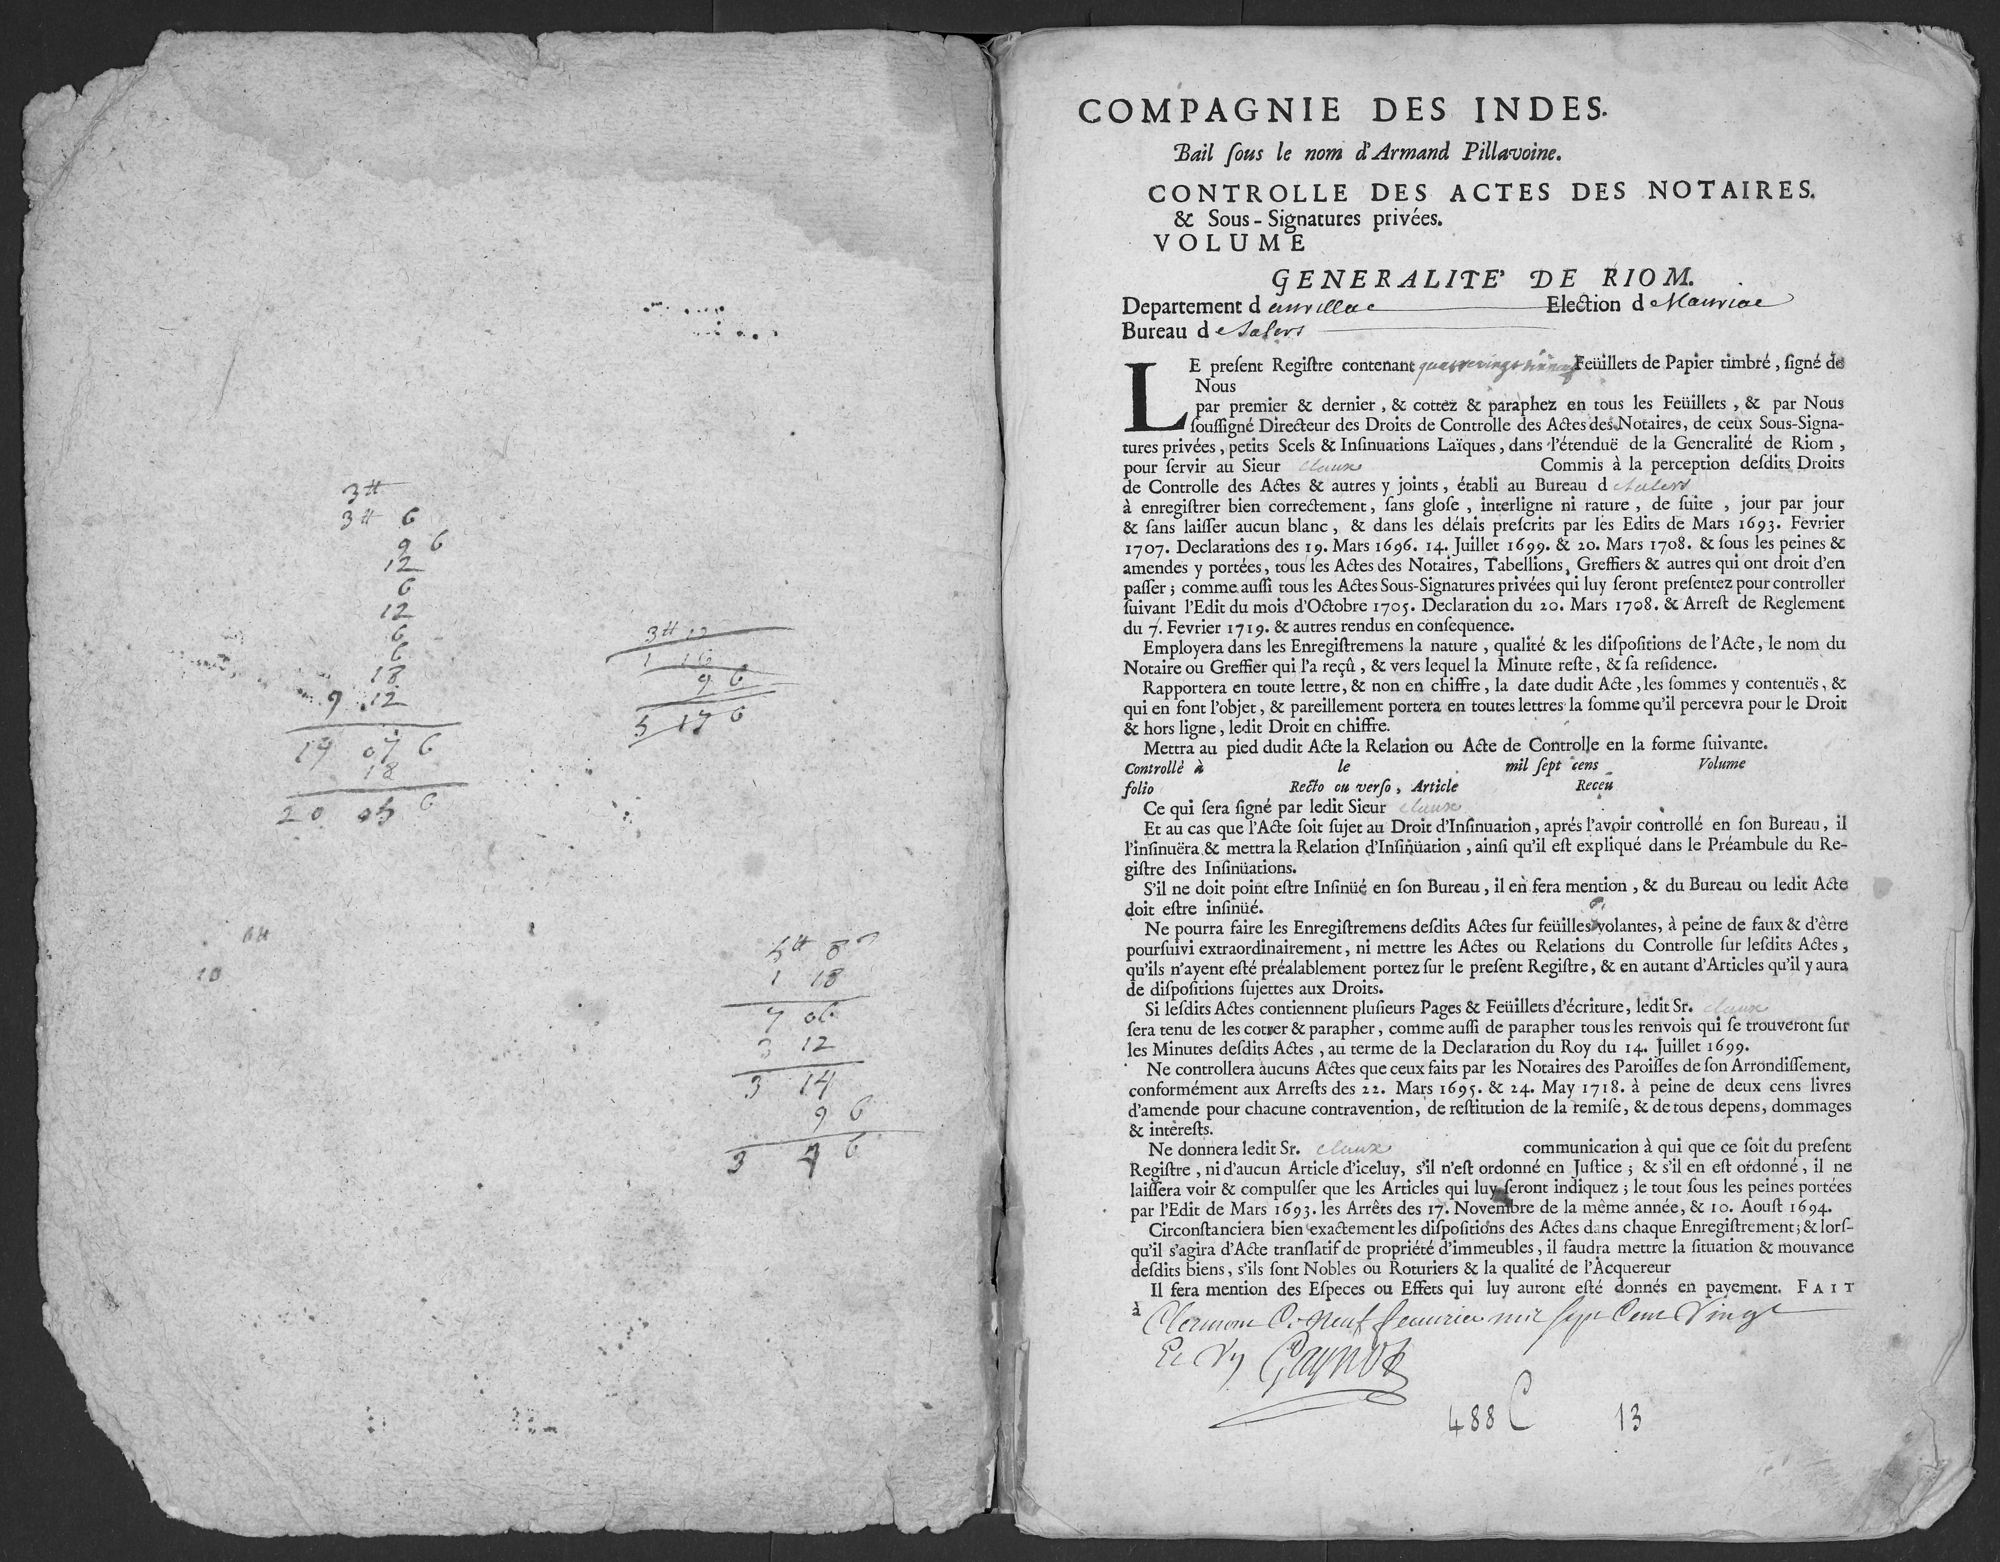 3 ₶
3 ₶ 6
9 6
12
6
12
6
6
18
9 12
19 07 6
18
20 05 6
3 ₶ 12
1 16
9 6
5 17 6
10
5 ₶ 8
1 18
7 06
3 12
3 14
9 6
3 4 6
COMPAGNIE DES INDES.
Bail ſous le nom d'Armand Pillavoine.
CONTROLLE DES ACTES DES NOTAIRES.
& Sous-Signatures privées.
VOLUME
GENERALITE' DE RIOM.
Departement d'aurillac Election de Mauriac
Bureau de Salers
LE preſent Regiſtre contenant Feüillets de Papier timbré, ſigné de
Nous
par premier & dernier, & cottez & paraphez en tous les Feüillets, & par Nous
ſouſſigné Directeur des Droits de Controlle des Actes des Notaires, de ceux Sous-Signa-
tures privées, petits Scels & Inſinuations Laïques, dans l'étenduë de la Generalité de Riom,
pour ſervir au Sieur claux Commis à la perception deſdits Droits
de Controlle des Actes & autres y joints, établi au Bureau de Salers
à enregiſtrer bien correctement, ſans gloſe, interligne ni rature, de ſuite, jour par jour
& ſans laiſſer aucun blanc, & dans les délais preſcrits par les Edits de Mars 1693. Fevrier
1707. Declarations des 19. Mars 1696. 14. Juillet 1699. & 20. Mars 1708. & ſous les peines &
amendes y portées, tous les Actes des Notaires, Tabellions, Greffiers & autres qui ont droit d'en
paſſer; comme auſſi tous les Actes Sous-Signatures privées qui luy ſeront preſentez pour controller
ſuivant l'Edit du mois d'Octobre 1705. Declaration du 20. Mars 1708. & Arreſt de Reglement
du 7. Fevrier 1719. & autres rendus en conſequence.
Employera dans les Enregiſtremens la nature, qualité & les diſpoſitions de l'Acte, le nom du
Notaire ou Greffier qui l'a reçû, & vers lequel la Minute reſte, & ſa reſidence.
Rapportera en toute lettre, & non en chiffre, la date dudit Acte, les ſommes y contenuës, &
qui en font l'objet, & pareillement portera en toutes lettres la ſomme qu'il percevra pour le Droit
& hors ligne, ledit Droit en chiffre.
Mettra au pied dudit Acte la Relation ou Acte de Controlle en la forme ſuivante.
Controllé à le mil ſept cens Volume
folio Recto ou verſo, Article Receu
Ce qui ſera ſigné par ledit Sieur claux
Et au cas que l'Acte ſoit ſujet au Droit d'Inſinuation, aprés l'avoir controllé en ſon Bureau, il
l'inſinuëra & mettra la Relation d'Inſinüation, ainſi qu'il eſt expliqué dans le Préambule du Re-
giſtre des Inſinüations.
S'il ne doit point eſtre Inſinüé en ſon Bureau, il en ſera mention, & du Bureau ou ledit Acte
doit eſtre inſinüé.
Ne pourra faire les Enregiſtremens deſdits Actes ſur feüilles volantes, à peine de faux & d'être
pourſuivi extraordinairement, ni mettre les Actes ou Relations du Controlle ſur leſdits Actes,
qu'ils n'ayent eſté préalablement portez ſur le preſent Regiſtre, & en autant d'Articles qu'il y aura
de diſpoſitions ſujettes aux Droits.
Si leſdits Actes contiennent pluſieurs Pages & Feüillets d'écriture, ledit Sr. claux
ſera tenu de les cotter & parapher, comme auſſi de parapher tous les renvois qui ſe trouveront ſur
les Minutes deſdits Actes, au terme de la Declaration du Roy du 14. Juillet 1699.
Ne controllera aucuns Actes que ceux faits par les Notaires des Paroiſſes de ſon Arrondiſſement,
conformément aux Arreſts des 22. Mars 1695. & 24. May 1718. à peine de deux cens livres
d'amende pour chacune contravention, de reſtitution de la remiſe, & de tous depens, dommages
& intèreſts.
Ne donnera ledit Sr. claux communication à qui que ce ſoit du preſent
Regiſtre, ni d'aucun Article d'iceluy, s'il n'eſt ordonné en Juſtice; & s'il en eſt ordonné, il ne
laiſſera voir & compulſer que les Articles qui luy ſeront indiquez; le tout ſous les peines portées
par l'Edit de Mars 1693. les Arrêts des 17. Novembre de la même année, & 10. Aouſt 1694.
Circonſtanciera bien exactement les diſpoſitions des Actes dans chaque Enregiſtrement; & lorſ-
qu'il s'agira d'Acte tranſlatif de propriété d'immeubles, il faudra mettre la ſituation & mouvance
deſdits biens, s'ils ſont Nobles ou Roturiers & la qualité de l'Acquereur
Il ſera mention des Eſpeces ou Effets qui luy auront eſté donnés en payement. FAIT
à Clermont Ce Neuf feuurier mil sept Cent Vingt
Et Vn
488 C 13